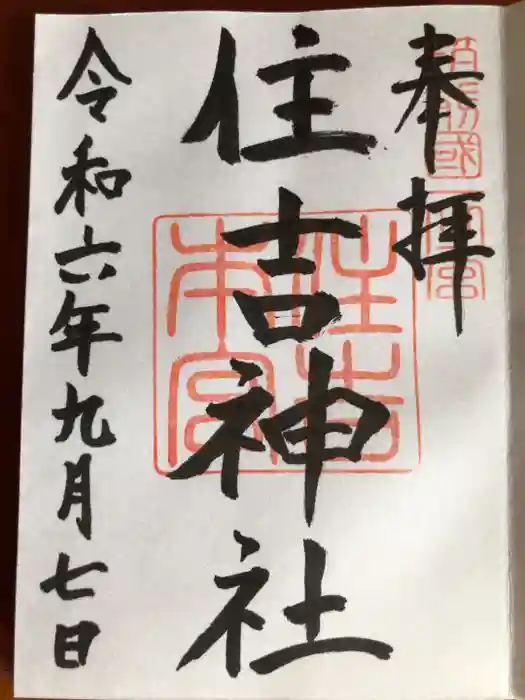 奉拝
住吉神社
令和六年九月七日
住吉
本宮